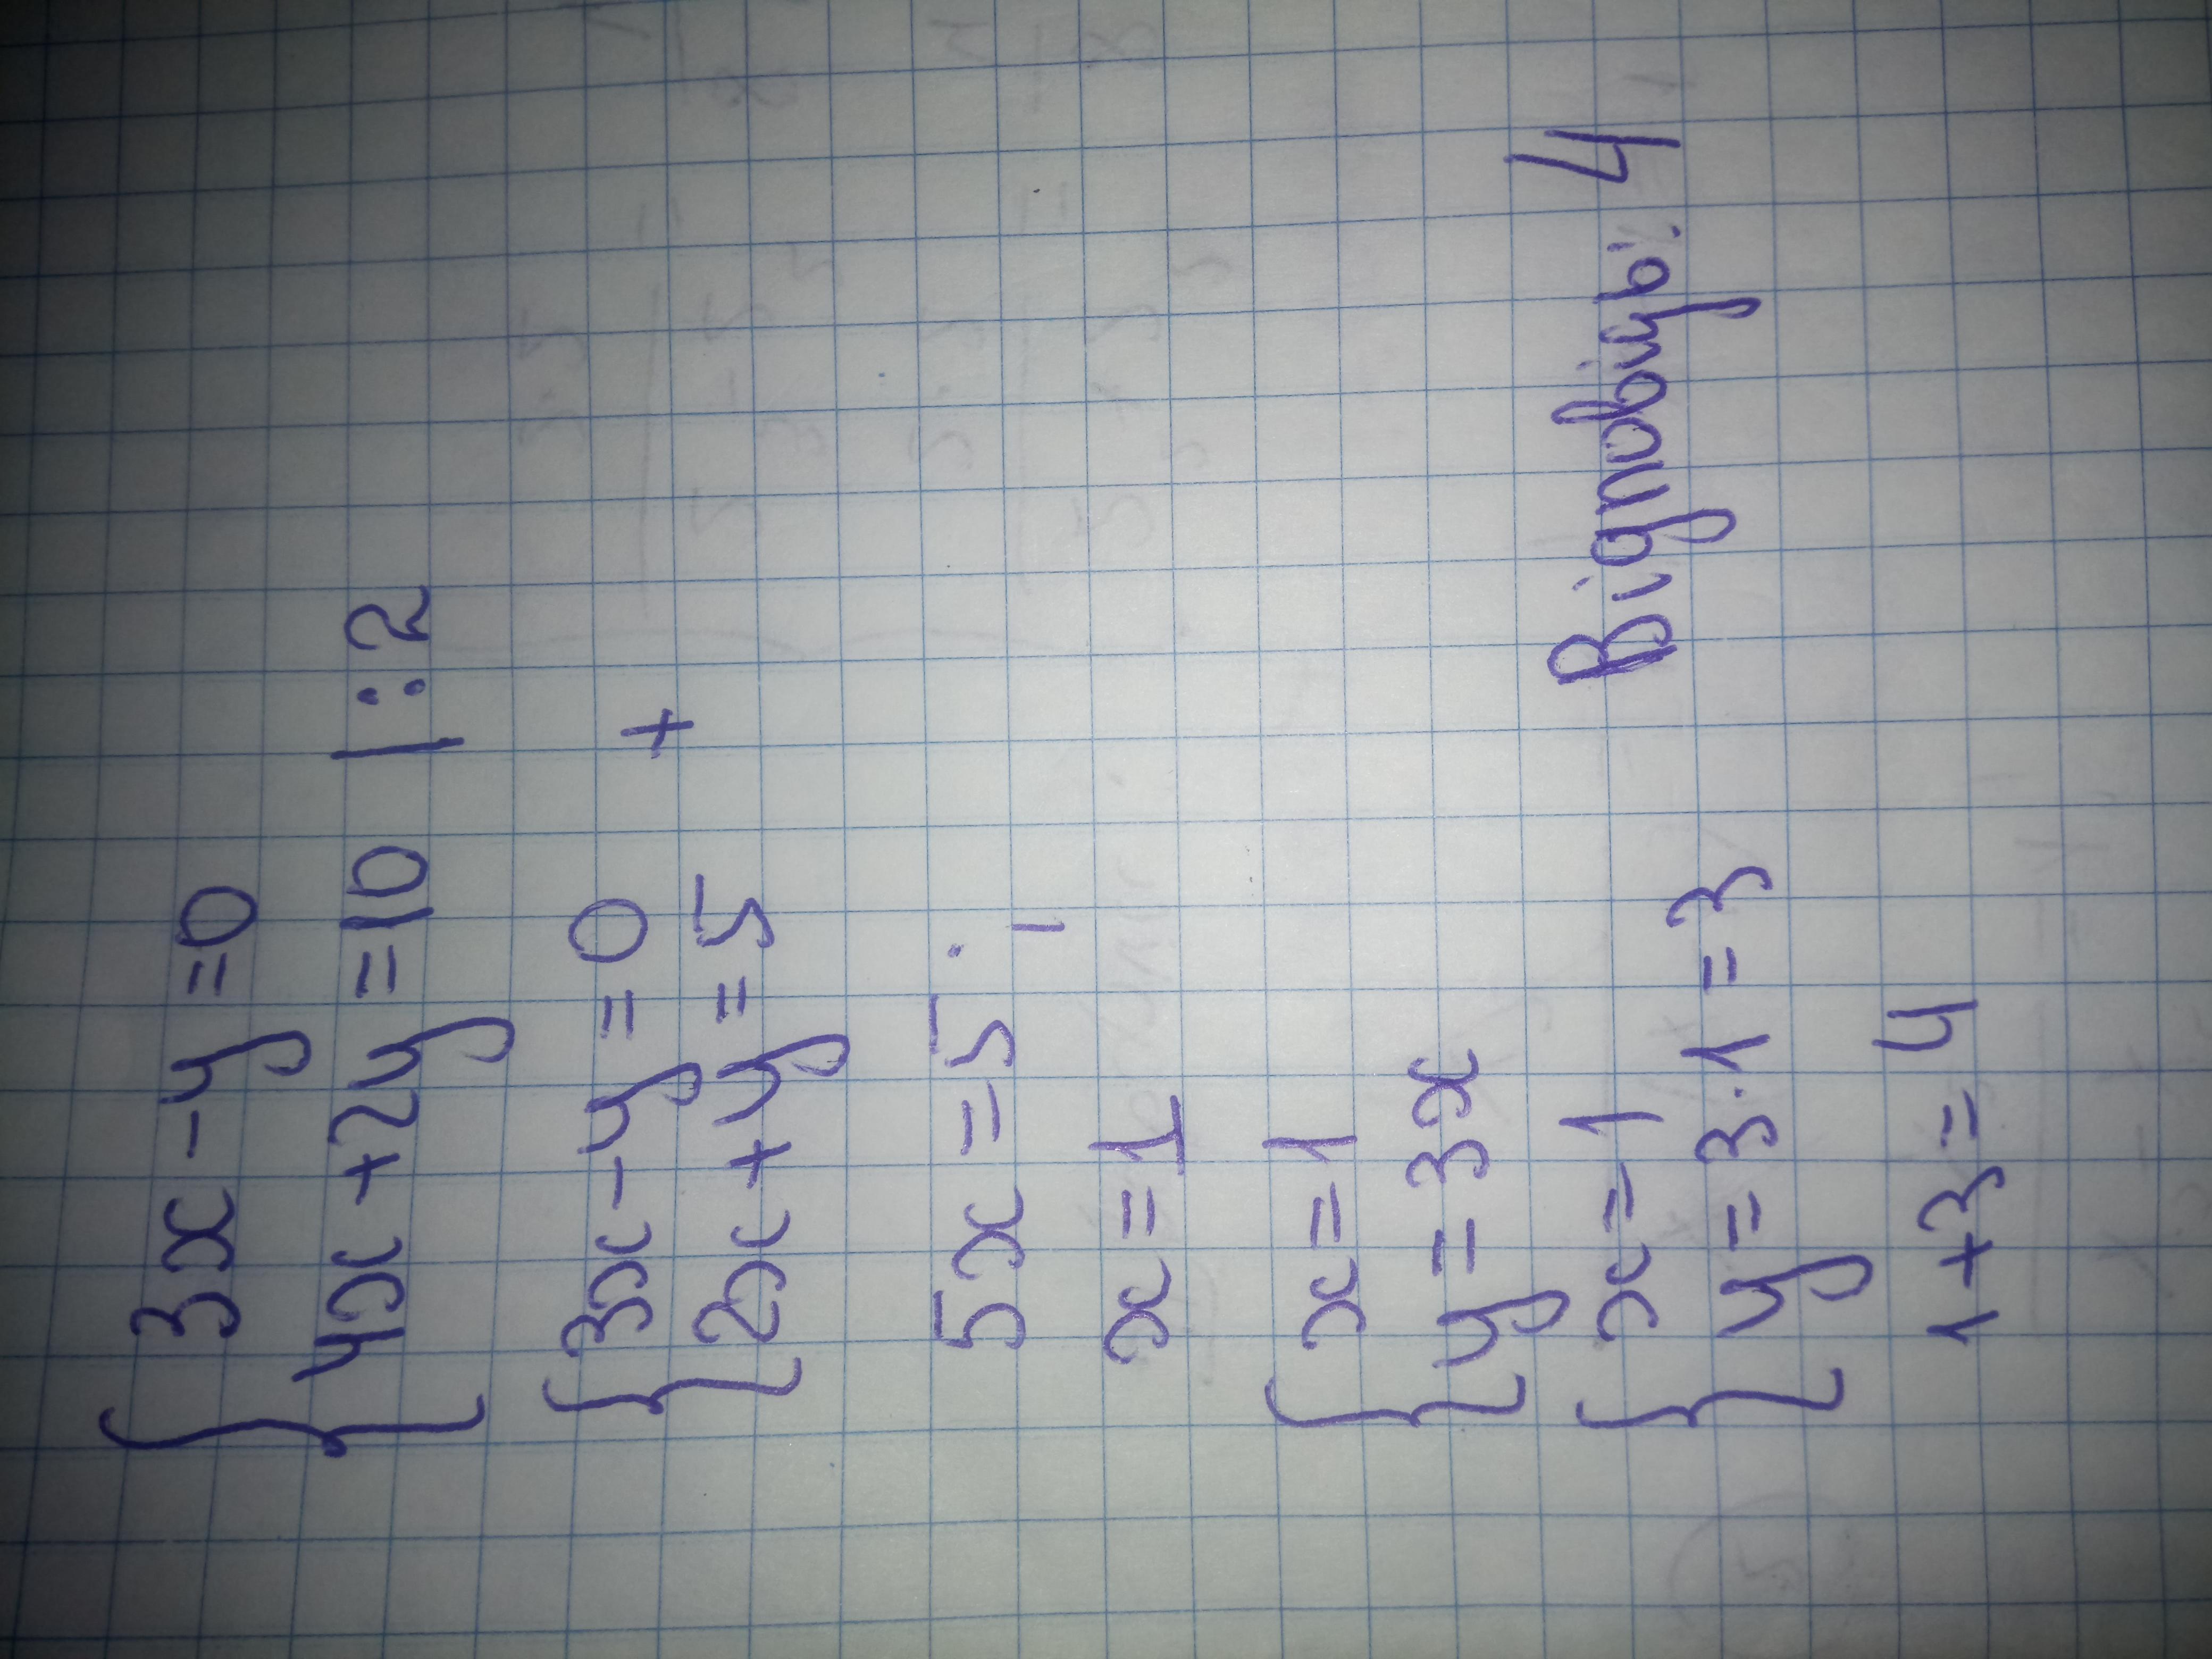 3x - y = 0
4x + 2y = 10 | : 2
3x - y = 0
+
2x + y = 5
5x = 5
x = 1
x = 1
y = 3x
x = 1
y = 3 · 1 = 3
1 + 3 = 4
Відповідь: 4